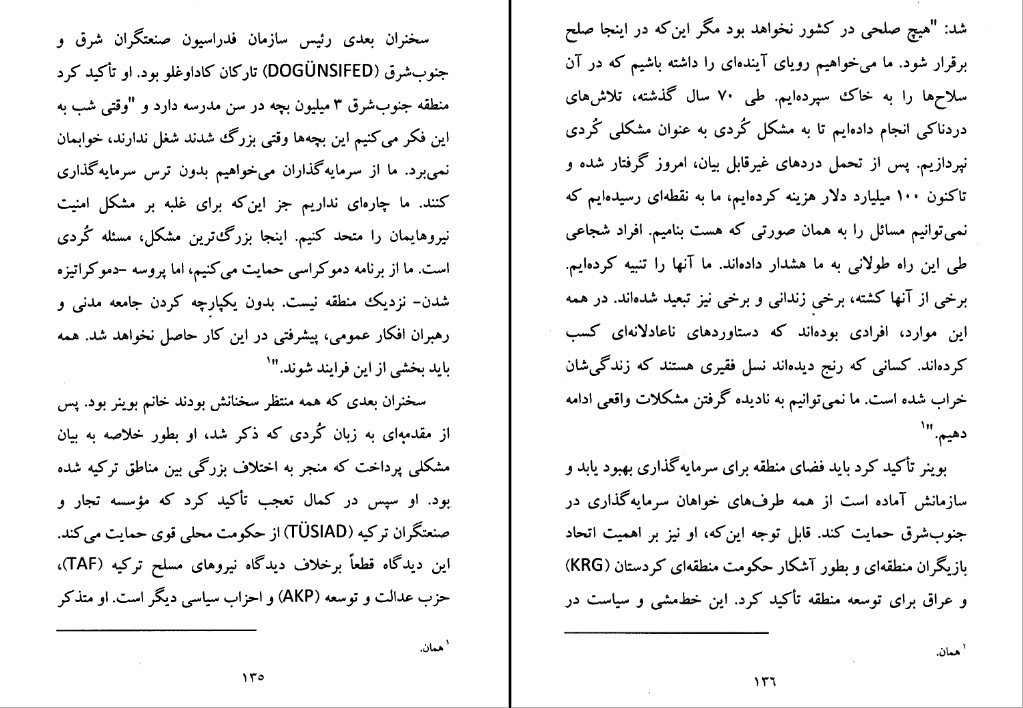 سخنران بعدی رئیس سازمان فدراسیون صنعتگران شرق و
جنوب‌شرق (DOGÜNSIFED) تارکان کاداوغلو بود. او تأکید کرد
منطقه جنوب‌شرق ۳ میلیون بچه در سن مدرسه دارد و "وقتی شب به
این فکر می‌کنیم این بچه‌ها وقتی بزرگ شدند شغل ندارند، خوابمان
نمی‌برد. ما از سرمایه‌گذاران می‌خواهیم بدون ترس سرمایه‌گذاری
کنند. ما چاره‌ای نداریم جز این‌که برای غلبه بر مشکل امنیت
نیروهایمان را متحد کنیم. اینجا بزرگ‌ترین مشکل، مسئله کُردی
است. ما از برنامه دموکراسی حمایت می‌کنیم، اما پروسه -دموکراتیزه
شدن- نزدیک منطقه نیست. بدون یکپارچه کردن جامعه مدنی و
رهبران افکار عمومی، پیشرفتی در این کار حاصل نخواهد شد. همه
باید بخشی از این فرایند شوند."۱
سخنران بعدی که همه منتظر سخنانش بودند خانم بوینر بود. پس
از مقدمه‌ای به زبان کُردی که ذکر شد، او بطور خلاصه به بیان
مشکلی پرداخت که منجر به اختلاف بزرگی بین مناطق ترکیه شده
بود. او سپس در کمال تعجب تأکید کرد که مؤسسه تجار و
صنعتگران ترکیه (TÜSIAD) از حکومت محلی قوی حمایت می‌کند.
این دیدگاه قطعاً برخلاف دیدگاه نیروهای مسلح ترکیه (TAF)،
حزب عدالت و توسعه (AKP) و احزاب سیاسی دیگر است. او متذکر
۱ همان.
۱۳۵
شد: "هیچ صلحی در کشور نخواهد بود مگر این‌که در اینجا صلح
برقرار شود. ما می‌خواهیم رویای آینده‌ای را داشته باشیم که در آن
سلاح‌ها را به خاک سپرده‌ایم. طی ۷۰ سال گذشته، تلاش‌های
دردناکی انجام داده‌ایم تا به مشکل کُردی به عنوان مشکلی کُردی
نپردازیم. پس از تحمل دردهای غیرقابل بیان، امروز گرفتار شده و
تاکنون ۱۰۰ میلیارد دلار هزینه کرده‌ایم، ما به نقطه‌ای رسیده‌ایم که
نمی‌توانیم مسائل را به همان صورتی که هست بنامیم. افراد شجاعی
طی این راه طولانی به ما هشدار داده‌اند. ما آنها را تنبیه کرده‌ایم.
برخی از آنها کشته، برخی زندانی و برخی نیز تبعید شده‌اند. در همه
این موارد، افرادی بوده‌اند که دستاوردهای ناعادلانه‌ای کسب
کرده‌اند. کسانی که رنج دیده‌اند نسل فقیری هستند که زندگی‌شان
خراب شده است. ما نمی‌توانیم به نادیده گرفتن مشکلات واقعی ادامه
دهیم."۱
بوینر تأکید کرد باید فضای منطقه برای سرمایه‌گذاری بهبود یابد و
سازمانش آماده است از همه طرف‌های خواهان سرمایه‌گذاری در
جنوب‌شرق حمایت کند. قابل توجه این‌که، او نیز بر اهمیت اتحاد
بازیگران منطقه‌ای و بطور آشکار حکومت منطقه‌ای کردستان (KRG)
و عراق برای توسعه منطقه تأکید کرد. این خط‌مشی و سیاست در
۱ همان.
۱۳۶